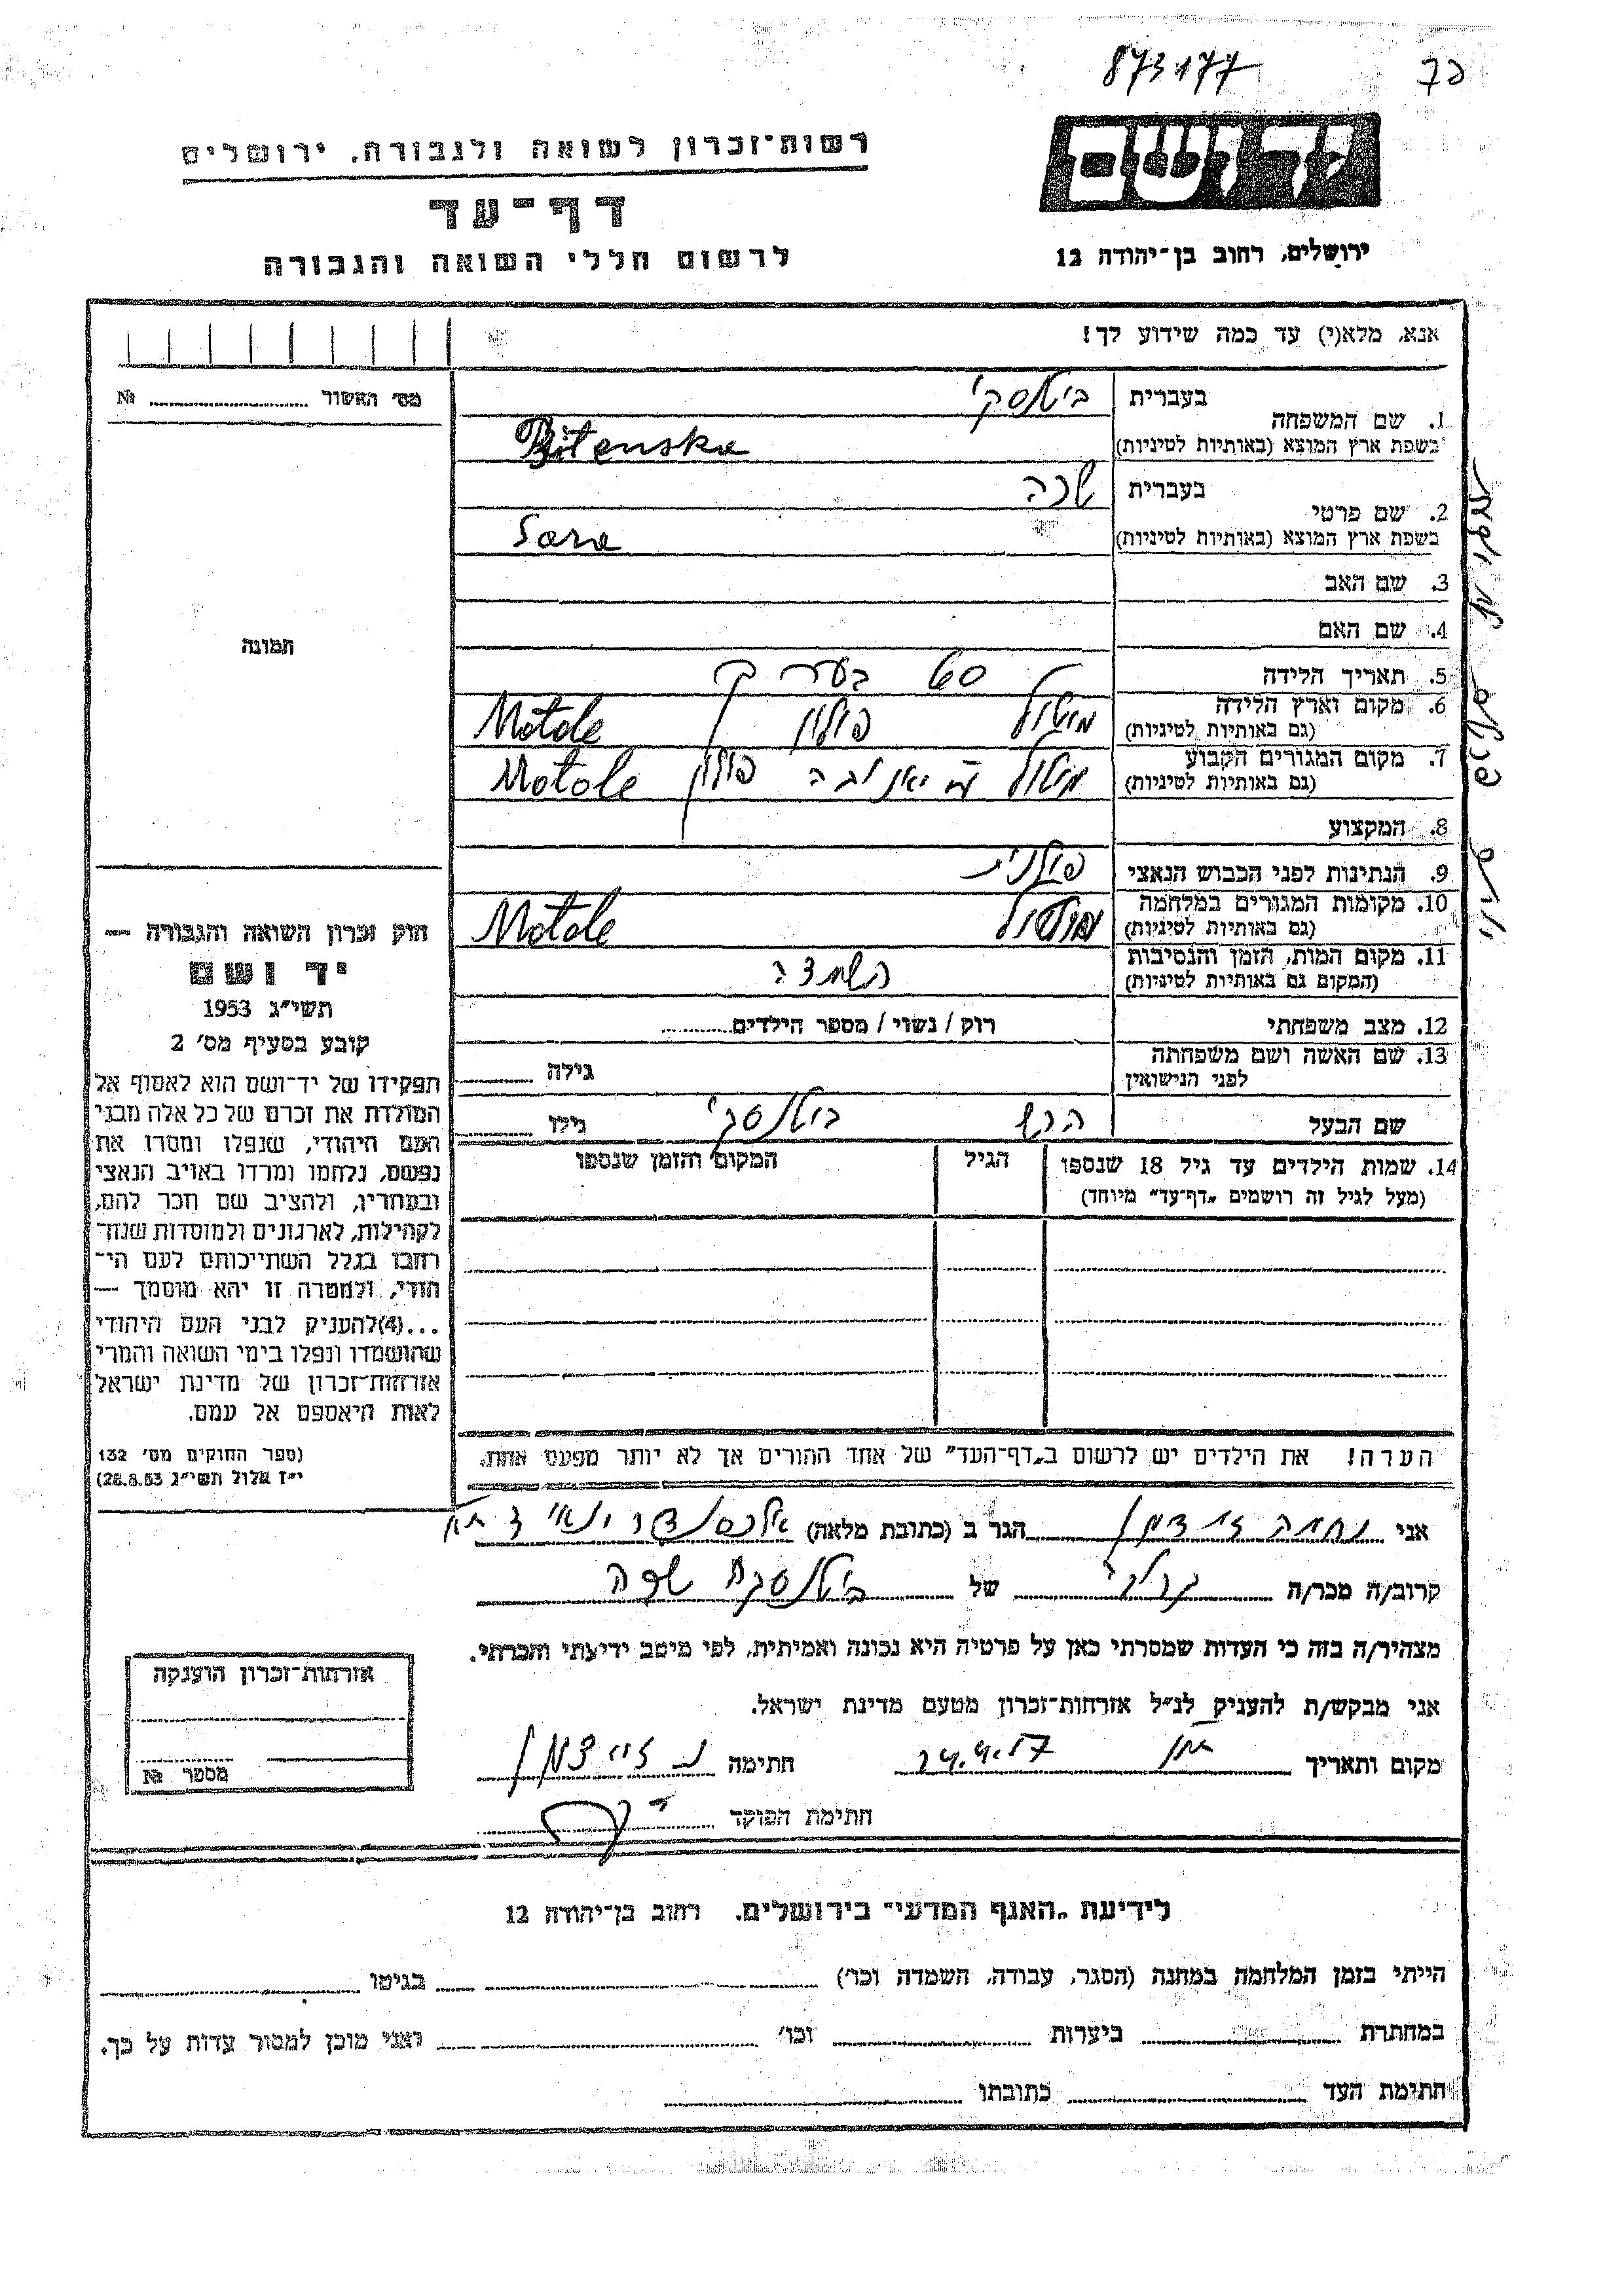 873177
יד ושם
רשות־זכרון לשואה ולגבורה, ירושלים
דף־עד
לרשום חללי השואה והגבורה
ירושלים, רחוב בן־יהודה 12
אנא, מלא(י) עד כמה שידוע לך!
מס׳ האשור №
1. שם המשפחה
בעברית ביטנסקי
בשפת ארץ המוצא (באותיות לטיניות) Bitenska
2. שם פרטי
בעברית שרה
בשפת ארץ המוצא (באותיות לטיניות) Sara
3. שם האב
4. שם האם
5. תאריך הלידה 60 בערך
6. מקום וארץ הלידה (גם באותיות לטיניות) מוטול פולין Motole
7. מקום המגורים הקבוע (גם באותיות לטיניות) מוטול ע״י יאנובה פולין Motole
8. המקצוע
9. הנתינות לפני הכבוש הנאצי פולנית
10. מקומות המגורים במלחמה (גם באותיות לטיניות) מוטול Motole
11. מקום המות, הזמן והנסיבות (המקום גם באותיות לטיניות) השמדה
12. מצב משפחתי רוק / נשוי / מספר הילדים
13. שם האשה ושם משפחתה לפני הנישואין גילה
שם הבעל ביטנסקי גילו
14. שמות הילדים עד גיל 18 שנספו הגיל המקום והזמן שנספו
(מעל לגיל זה רושמים „דף־עד״ מיוחד)
הערה! את הילדים יש לרשום ב„דף־העד״ של אחד ההורים אך לא יותר מפעם אחת.
תמונה
חוק זכרון השואה והגבורה —
יד ושם
תשי״ג 1953
קובע בסעיף מס׳ 2
תפקידו של יד־ושם הוא לאסוף אל
המולדת את זכרם של כל אלה מבני
העם היהודי, שנפלו ומסרו את
נפשם, נלחמו ומרדו באויב הנאצי
ובעוזריו, ולהציב שם וזכר להם,
לקהילות, לארגונים ולמוסדות שנח־
רבו בגלל השתייכותם לעם הי־
הודי, ולמטרה זו יהא מוסמך —
...(4)להעניק לבני העם היהודי
שהושמדו ונפלו בימי השואה והמרי
אזרחות־זכרון של מדינת ישראל
לאות היאספם אל עמם.
(ספר החוקים מס׳ 132
י״ז אלול תשי״ג 28.8.53)
אני נחמה זיידמן הגר ב (כתובת מלאה) אלכסנדר ינאי
קרוב/ה מכר/ה של ביטנסקי שרה
מצהיר/ה בזה כי העדות שמסרתי כאן על פרטיה היא נכונה ואמיתית, לפי מיטב ידיעתי והכרתי.
אני מבקש/ת להעניק לנ״ל אזרחות־זכרון מטעם מדינת ישראל.
מקום ותאריך 24.4.57 חתימה נ. זיידמן
חתימת הפוקד
אזרחות־זכרון הוענקה
מספר №
לידיעת „האגף המדעי״ בירושלים. רחוב בן־יהודה 12
הייתי בזמן המלחמה במחנה (הסגר, עבודה, השמדה וכו׳) בגיטו
במחתרת ביערות וכו׳ ואני מוכן למסור עדות על כך.
חתימת העד כתובתו